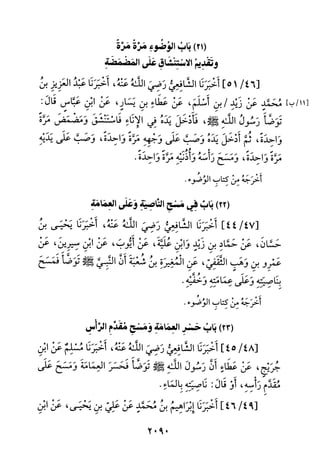 (٢١) بَابُ الوُضُوءِ مَرَّةً مَرَّةً
وتَقْدِيمُ الاسْتِنْشَاقِ عَلَى المَضْمَضَةِ
[٥١/٤٦] أَخْبَرَنَا الشَّافِعِيُّ رَضِيَ اللَّهُ عَنْهُ، أَخْبَرَنَا عَبْدُ العَزِيزِ بنُ
[١١/ب] مُحَمَّدٍ عَنْ زَيْدِ / بنِ أَسْلَمَ، عَنْ عَطَاءِ بنِ يَسَارٍ، عَنْ ابْنِ عَبَّاسٍ قَالَ:
تَوَضَّأَ رَسُولُ اللَّهِ ﷺ، فَأَدْخَلَ يَدَهُ فِي الإِنَاءِ فَاسْتَنْشَقَ وَمَضْمَضَ مَرَّةً
وَاحِدَةً، ثُمَّ أَدْخَلَ يَدَهُ وَصَبَّ عَلَى وَجْهِهِ مَرَّةً وَاحِدَةً، وَصَبَّ عَلَى يَدَيْهِ
مَرَّةً وَاحِدَةً، وَمَسَحَ رَأْسَهُ وَأُذُنَيْهِ مَرَّةً وَاحِدَةً.
أَخْرَجَهُ مِنْ كِتَابِ الوُضُوءِ.
(٢٢) بَابٌ فِي مَسْحِ النَّاصِيَةِ وَعَلَى العِمَامَةِ
[٤٤/٤٧] أَخْبَرَنَا الشَّافِعِيُّ رَضِيَ اللَّهُ عَنْهُ، أَخْبَرَنَا يَحْيَـى بنُ
حَسَّانَ، عَنْ حَمَّادِ بنِ زَيْدٍ وَابْنِ عُلَيَّةَ، عَنْ أَيُّوبَ، عَنْ ابْنِ سِيرِينَ، عَنْ
عَمْرِو بنِ وَهْبٍ الثَّقَفِيِّ، عَنِ المُغِيرَةِ بنِ شُعْبَةَ أَنَّ النَّبِيَّ ﷺ تَوَضَّأَ فَمَسَحَ
بِنَاصِيَتِهِ وَعَلَى عِمَامَتِهِ وَخُفَّيْهِ.
أَخْرَجَهُ مِنْ كِتَابِ الوُضُوءِ.
(٢٣) بَابُ حَسْرِ العِمَامَةِ وَمَسْحِ مُقَدَّمِ الرَّأْسِ
[٤٥/٤٨] أَخْبَرَنَا الشَّافِعِيُّ رَضِيَ اللَّهُ عَنْهُ، أَخْبَرَنَا مُسْلِمٌ عَنْ ابْنِ
جُرَيْجٍ، عَنْ عَطَاءٍ أَنَّ رَسُولَ اللَّهِ ﷺ تَوَضَّأَ فَحَسَرَ العِمَامَةَ وَمَسَحَ عَلَى
مُقَدَّمِ رَأْسِهِ، أَوْ قَالَ: نَاصِيَتِهِ بِالمَاءِ.
[٤٦/٤٩] أَخْبَرَنَا إِبْرَاهِيمُ بنُ مُحَمَّدٍ عَنْ عَلِيِّ بنِ يَحْيَـى، عَنْ ابْنِ
٢٠٩٠